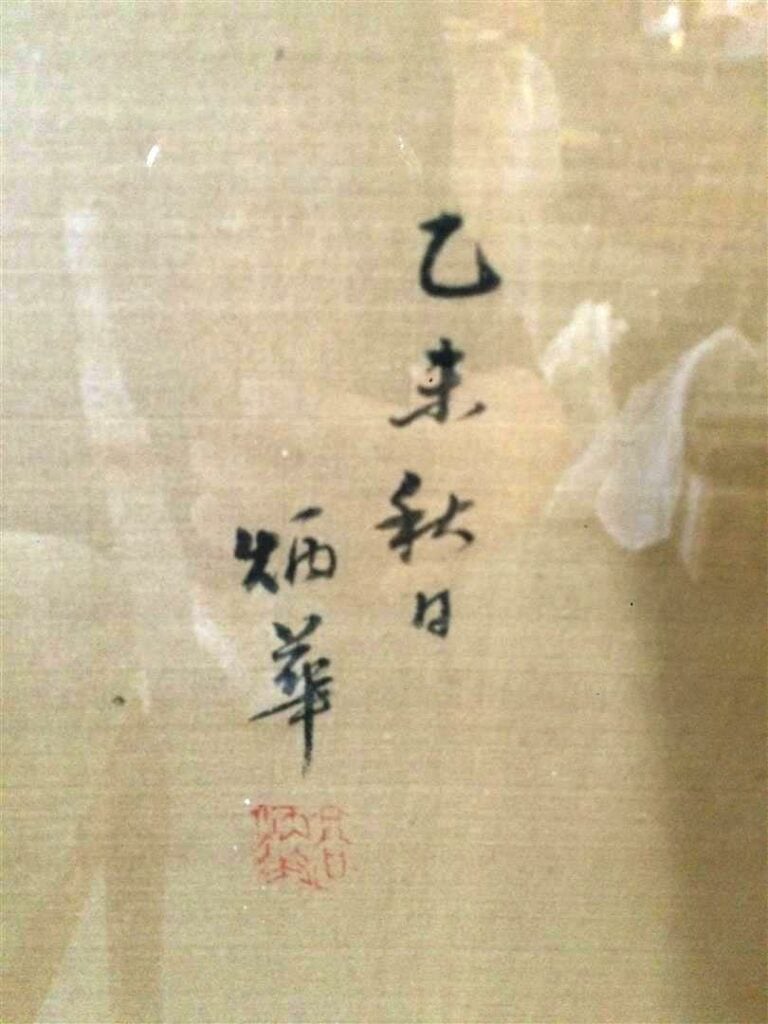 乙未秋日
炳華